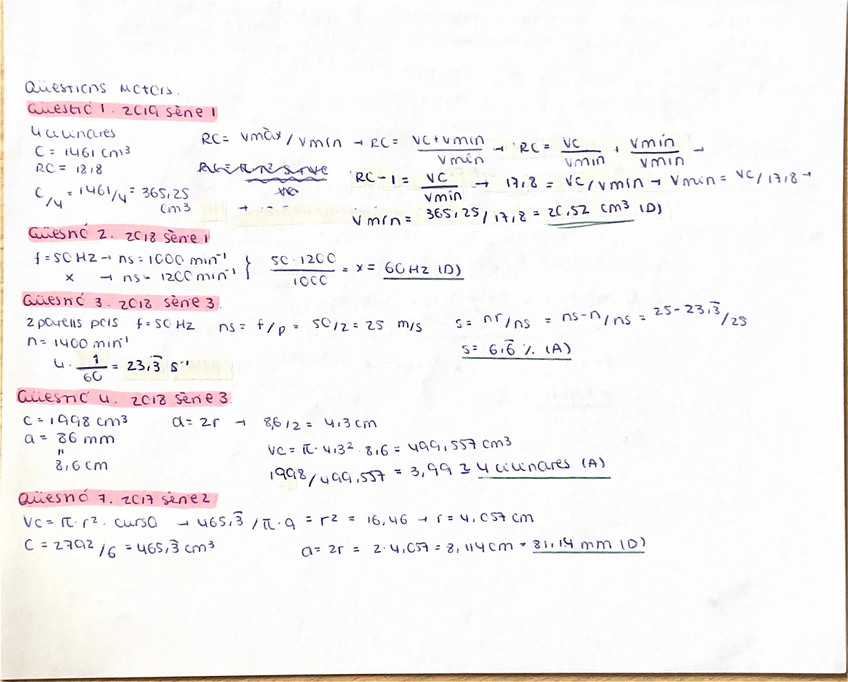 Qüestions Motors.
Qüestió 1. 2019 sèrie 1
4 cilindres
C = 1461 cm³
RC = 18,8
C/4 = 1461/4 = 365,25 cm³
RC = Vmàx/Vmín → RC = Vc+Vmín/Vmín → RC = Vc/Vmín + Vmín/Vmín →
RC-1 = Vc/Vmín → 17,8 = Vc/Vmín → Vmín = Vc/17,8 →
Vmín = 365,25/17,8 = 20,52 cm³ (D)
Qüestió 2. 2018 sèrie 1
f = 50 Hz → ns = 1000 min⁻¹
x → ns = 1200 min⁻¹ } 50·1200/1000 = x = 60 Hz (D)
Qüestió 3. 2018 sèrie 3
2 parells pols f = 50 Hz ns = f/p = 50/2 = 25 m/s s = nr/ns = ns-n/ns = 25-23,3̅/25
n = 1400 min⁻¹
s = 6,6̅ % (A)
4 · 1/60 = 23,3̅ s⁻¹
Qüestió 4. 2018 sèrie 3
C = 1998 cm³ d = 2r → 8,6/2 = 4,3 cm
d = 86 mm
"
8,6 cm
Vc = π·4,3²·8,6 = 499,557 cm³
1998/499,557 = 3,99 ≃ 4 cilindres (A)
Qüestió 7. 2017 sèrie 2
Vc = π·r²·cursa → 465,3̅/π·9 = r² = 16,46 → r = 4,057 cm
C = 2792/6 = 465,3̅ cm³ d = 2r = 2·4,057 = 8,114 cm = 81,14 mm (D)